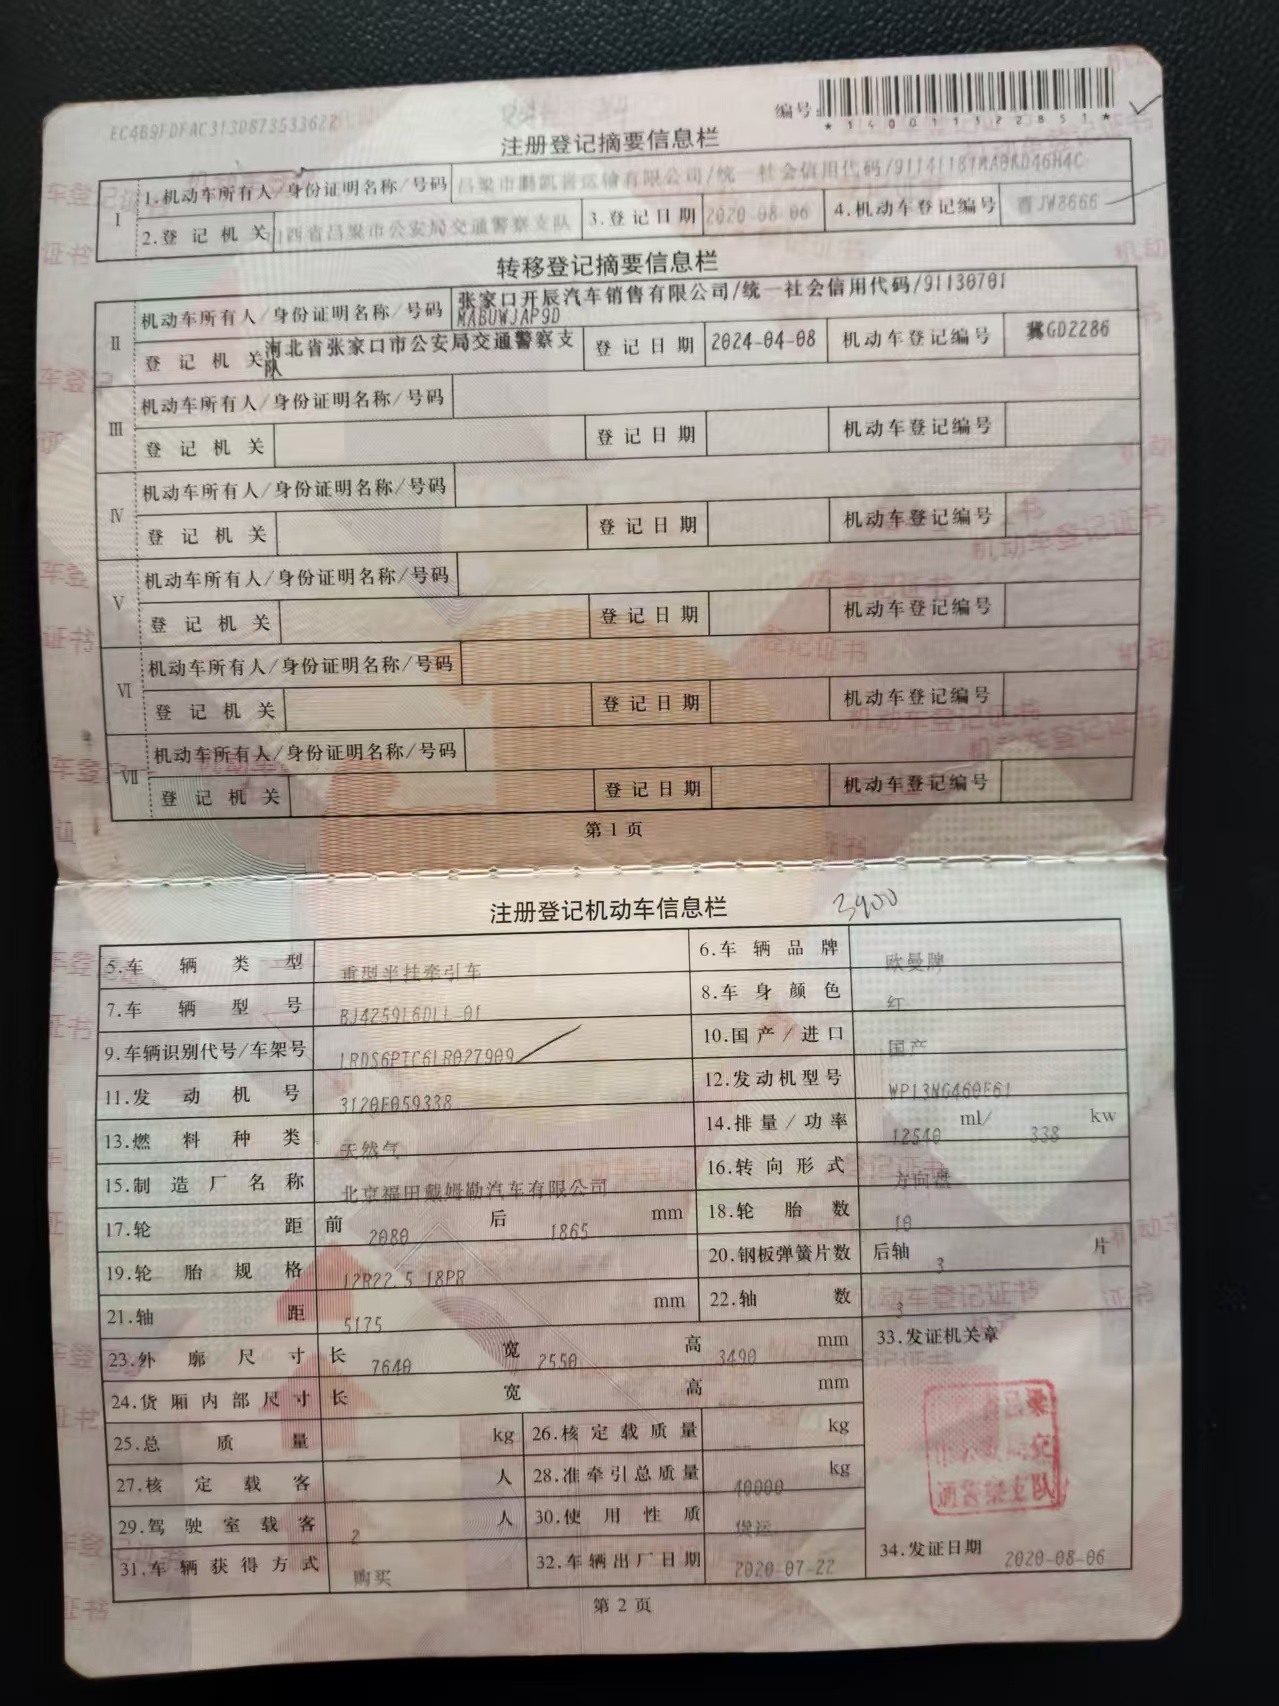 EC4B9FDFAC313D873533622
编号:
*140011322851*
注册登记摘要信息栏
I
1.机动车所有人/身份证明名称/号码 吕梁市鹏凯晋运输有限公司/统一社会信用代码/91141181MA0KD46H4C
2.登记机关 山西省吕梁市公安局交通警察支队 3.登记日期 2020-08-06 4.机动车登记编号 晋JW8666
转移登记摘要信息栏
II
机动车所有人/身份证明名称/号码 张家口开辰汽车销售有限公司/统一社会信用代码/91130701
MABUWJAP9D
登记机关 河北省张家口市公安局交通警察支 登记日期 2024-04-08 机动车登记编号 冀GD2286
队
III
机动车所有人/身份证明名称/号码
登记机关 登记日期 机动车登记编号
IV
机动车所有人/身份证明名称/号码
登记机关 登记日期 机动车登记编号
V
机动车所有人/身份证明名称/号码
登记机关 登记日期 机动车登记编号
VI
机动车所有人/身份证明名称/号码
登记机关 登记日期 机动车登记编号
VII
机动车所有人/身份证明名称/号码
登记机关 登记日期 机动车登记编号
第1页
注册登记机动车信息栏 3900
5.车辆类型 重型半挂牵引车 6.车辆品牌 欧曼牌
7.车辆型号 BJ4259L6DLL-01 8.车身颜色 红
9.车辆识别代号/车架号 LRDS6PTC6LR027909 10.国产/进口 国产
11.发动机号 3120F059338 12.发动机型号 WP13NG460E61
13.燃料种类 天然气 14.排量/功率 12540 ml/ 338 kw
15.制造厂名称 北京福田戴姆勒汽车有限公司 16.转向形式 方向盘
17.轮距 前 2080 后 1865 mm 18.轮胎数 10
19.轮胎规格 12R22.5 18PR 20.钢板弹簧片数 后轴 3 片
21.轴距 5175 mm 22.轴数 3
23.外廓尺寸 长 7640 宽 2550 高 3490 mm 33.发证机关章
24.货厢内部尺寸 长 -- 宽 -- 高 -- mm
25.总质量 -- kg 26.核定载质量 -- kg
27.核定载客 -- 人 28.准牵引总质量 40000 kg
29.驾驶室载客 2 人 30.使用性质 货运
31.车辆获得方式 购买 32.车辆出厂日期 2020-07-22 34.发证日期 2020-08-06
第2页